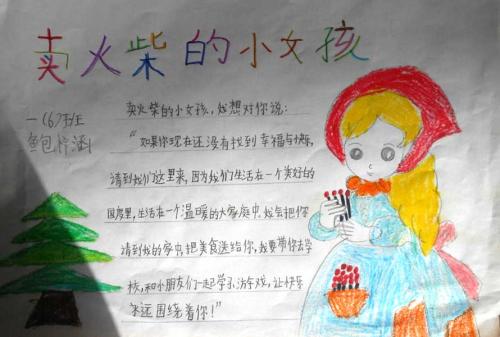 卖火柴的小女孩
一(6)班
鲍柠涵
卖火柴的小女孩,我想对你说:
“如果你现在还没有找到幸福与快乐,
请到我们这里来,因为我们生活在一个美好的
国度里,生活在一个温暖的大家庭中,我会把你
请到我的家中,把美食送给你,我要带你去学
校,和小朋友们一起学习、做游戏,让快乐
永远围绕着你!”